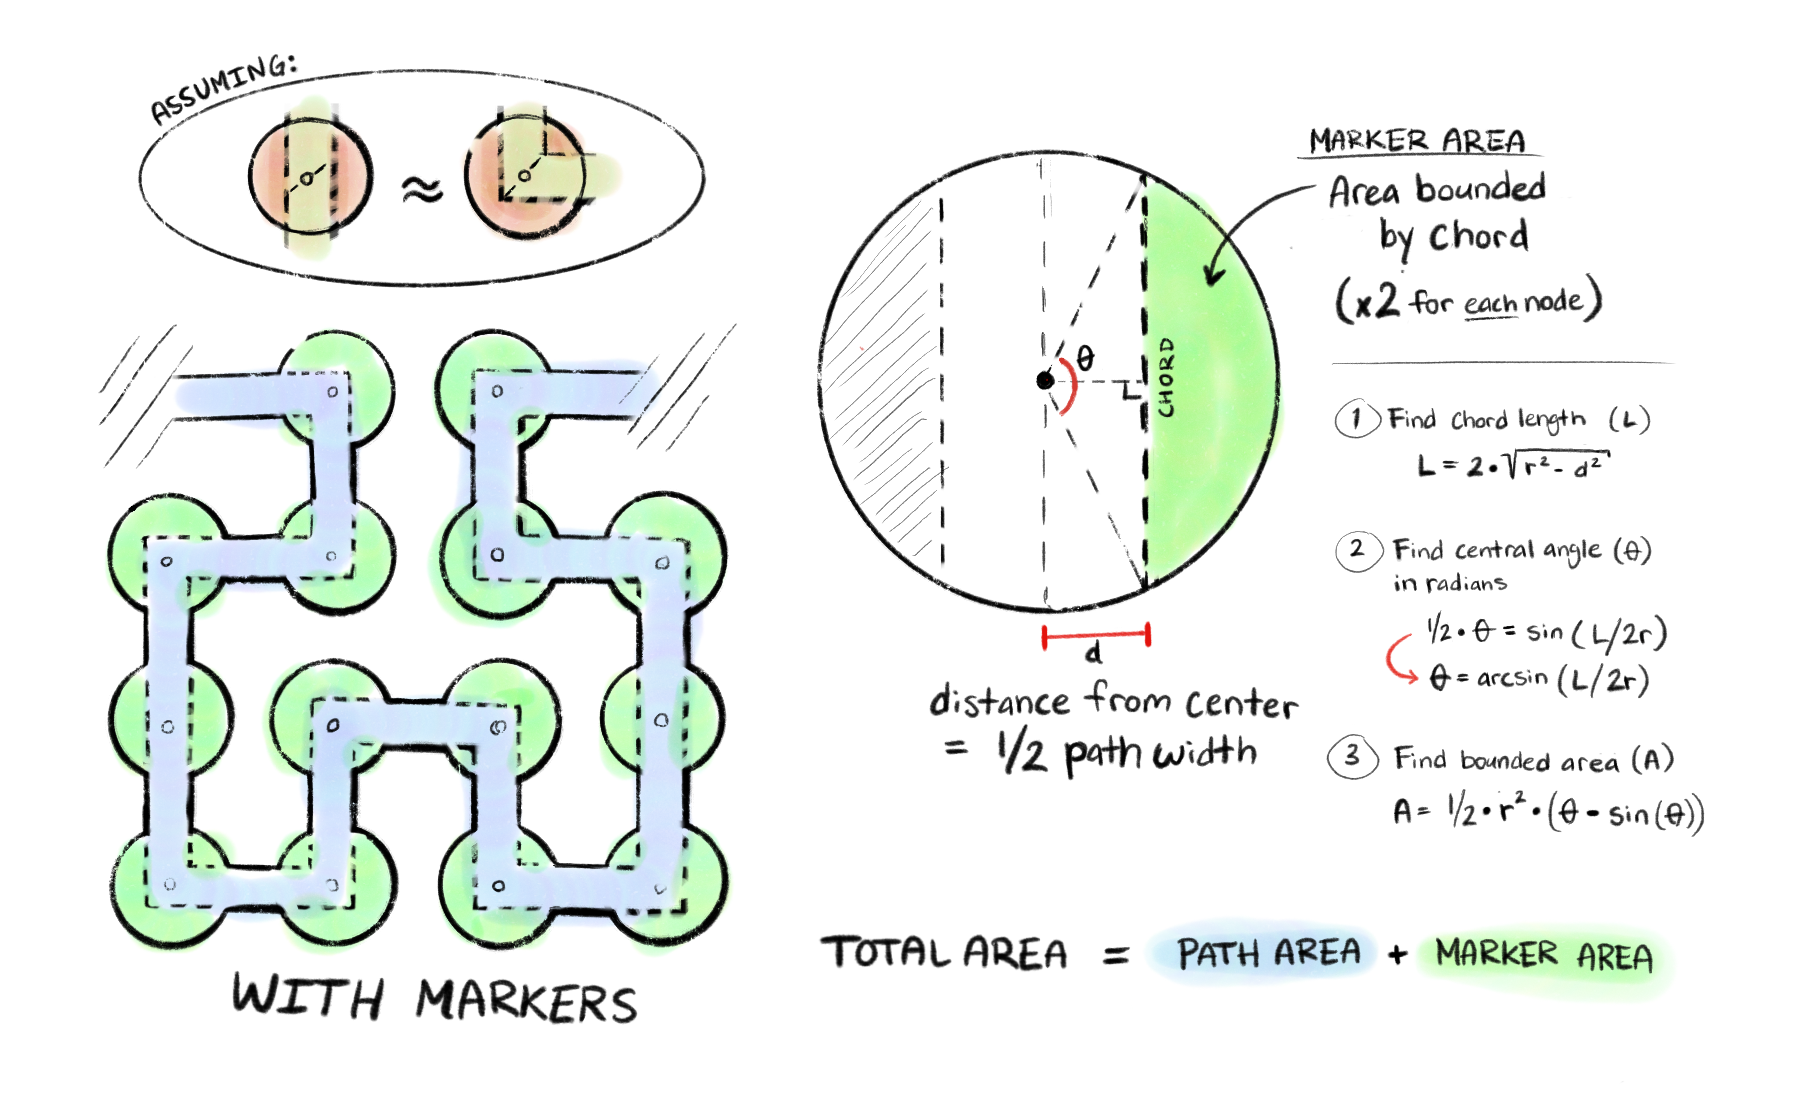 ASSUMING:
≈
WITH MARKERS
θ
L
CHORD
d
distance from center
= 1/2 path width
MARKER AREA
Area bounded
by Chord
(x2 for each node)
1 Find Chord length (L)
L = 2•√r² - d²
2 Find central angle (θ)
in radians
1/2 • θ = sin (L/2r)
θ = arcsin (L/2r)
3 Find bounded area (A)
A = 1/2 • r² • (θ - sin(θ))
TOTAL AREA = PATH AREA + MARKER AREA